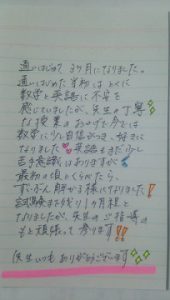 通いはじめて 3ヶ月になりました。
通いはじめた当初は とくに
数学と英語に不安を
感じていましたが、先生の丁寧
な授業のおかげで今では
数学に少し自信がつき、好きに
なりました 英語もまだ少し
苦手意識はありますが
最初の頃にくらべたら、
ずいぶん解かる様になりました!
試験まで残り1ヶ月程と
なりましたが、先生のご指導の
もと頑張って参ります!!
先生いつも ありがとうございます